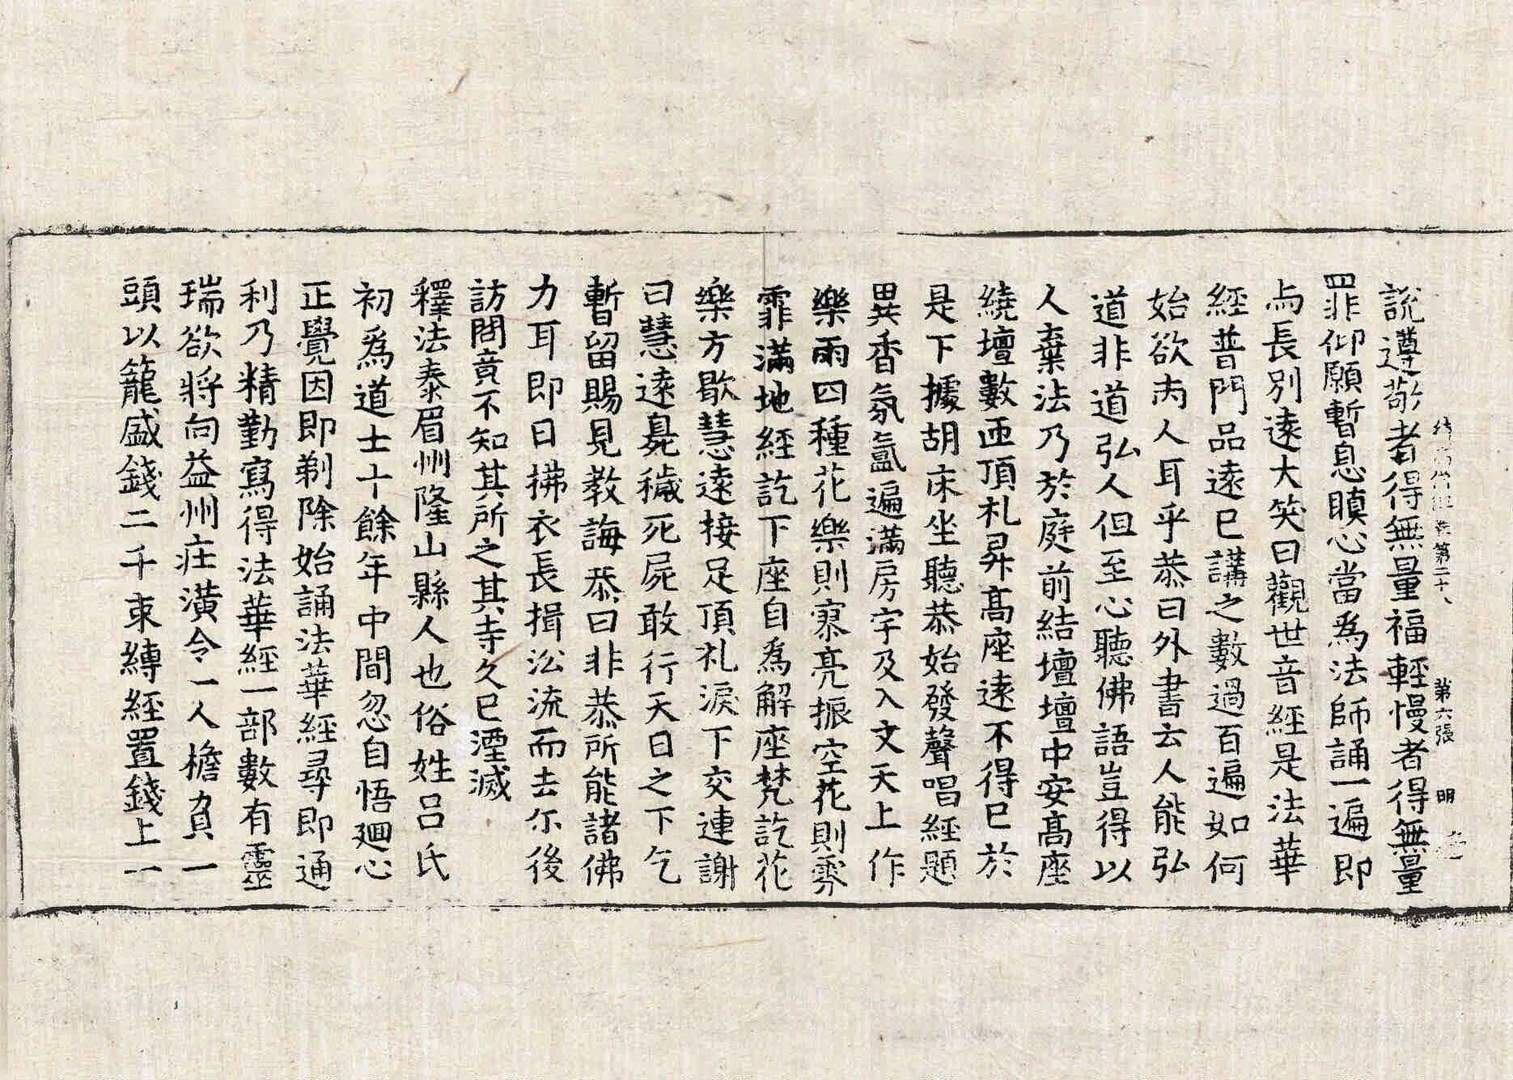 續高僧傳卷第二十八 第六張 明
說遵敬者得無量福輕慢者得無量
罪仰願暫息瞋心當為法師誦一遍即
与長別遠大笑曰觀世音經是法華
經普門品遠已講之數過百遍如何
始欲夷人耳乎恭曰外書云人能弘
道非道弘人但至心聽佛語豈得以
人棄法乃於庭前結壇壇中安高座
繞壇數匝頂札昇高座遠不得已於
是下據胡床坐聽恭始發聲唱經題
異香氛氳遍滿房宇及入文天上作
樂雨四種花樂則寥亮振空花則雰
霏滿地經訖下座自為解座梵訖花
樂方歇慧遠接足頂礼淚下交連謝
曰慧遠臭穢死屍敢行天日之下乞
暫留賜見教誨恭曰非恭所能諸佛
力耳即日拂衣長揖沿流而去尒後
訪問竟不知其所之其寺久已湮滅
釋法泰眉州隆山縣人也俗姓呂氏
初為道士十餘年中間忽自悟迴心
正覺因即剃除始誦法華經尋即通
利乃精勤寫得法華經一部數有靈
瑞欲將向益州莊潢令一人檐負一
頭以籠盛錢二千束縛經置錢上一